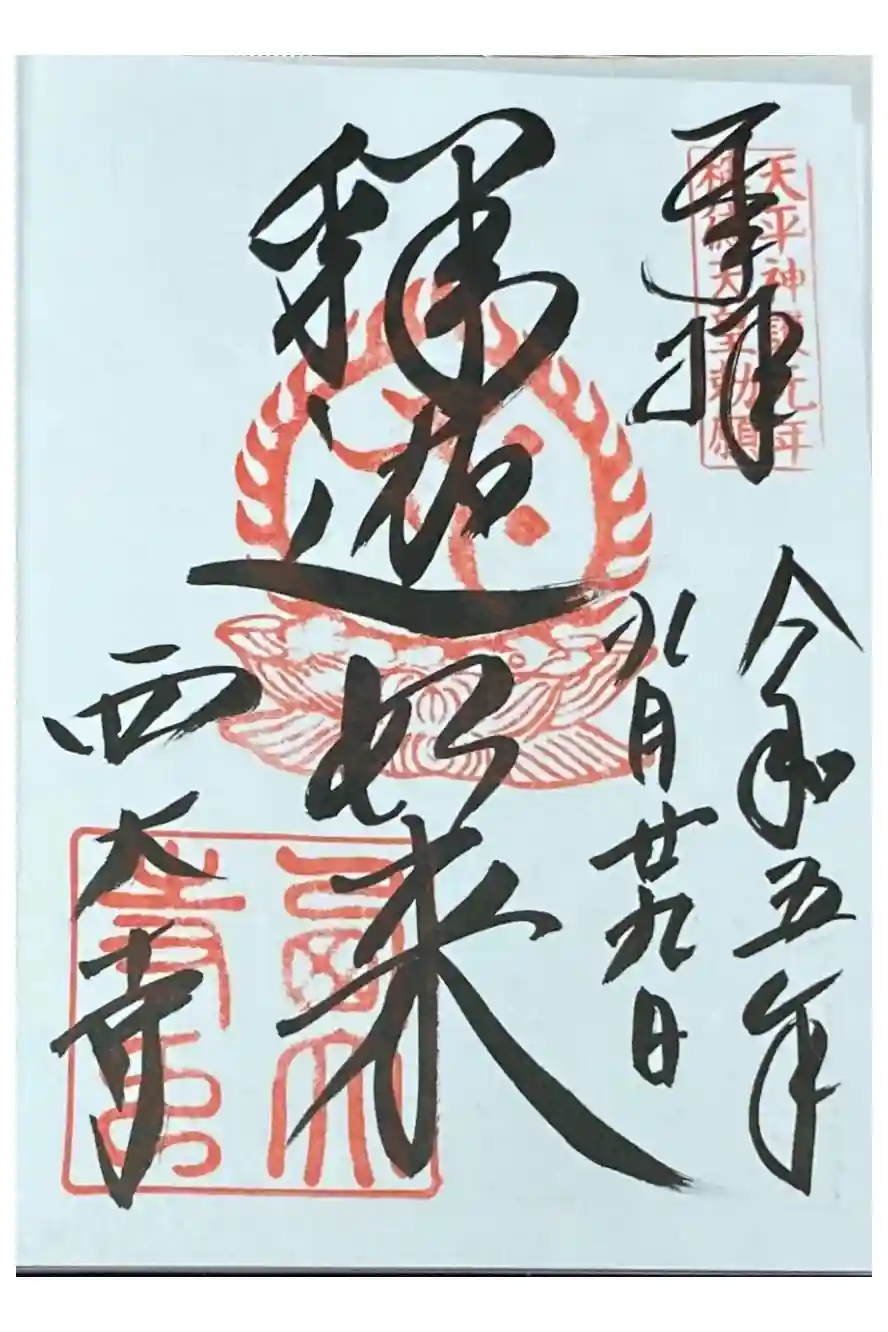 天平神護元年
稱徳天皇勅願
奉拝
令和五年
八月廿九日
釋迦如来
西大寺
西大
寺印